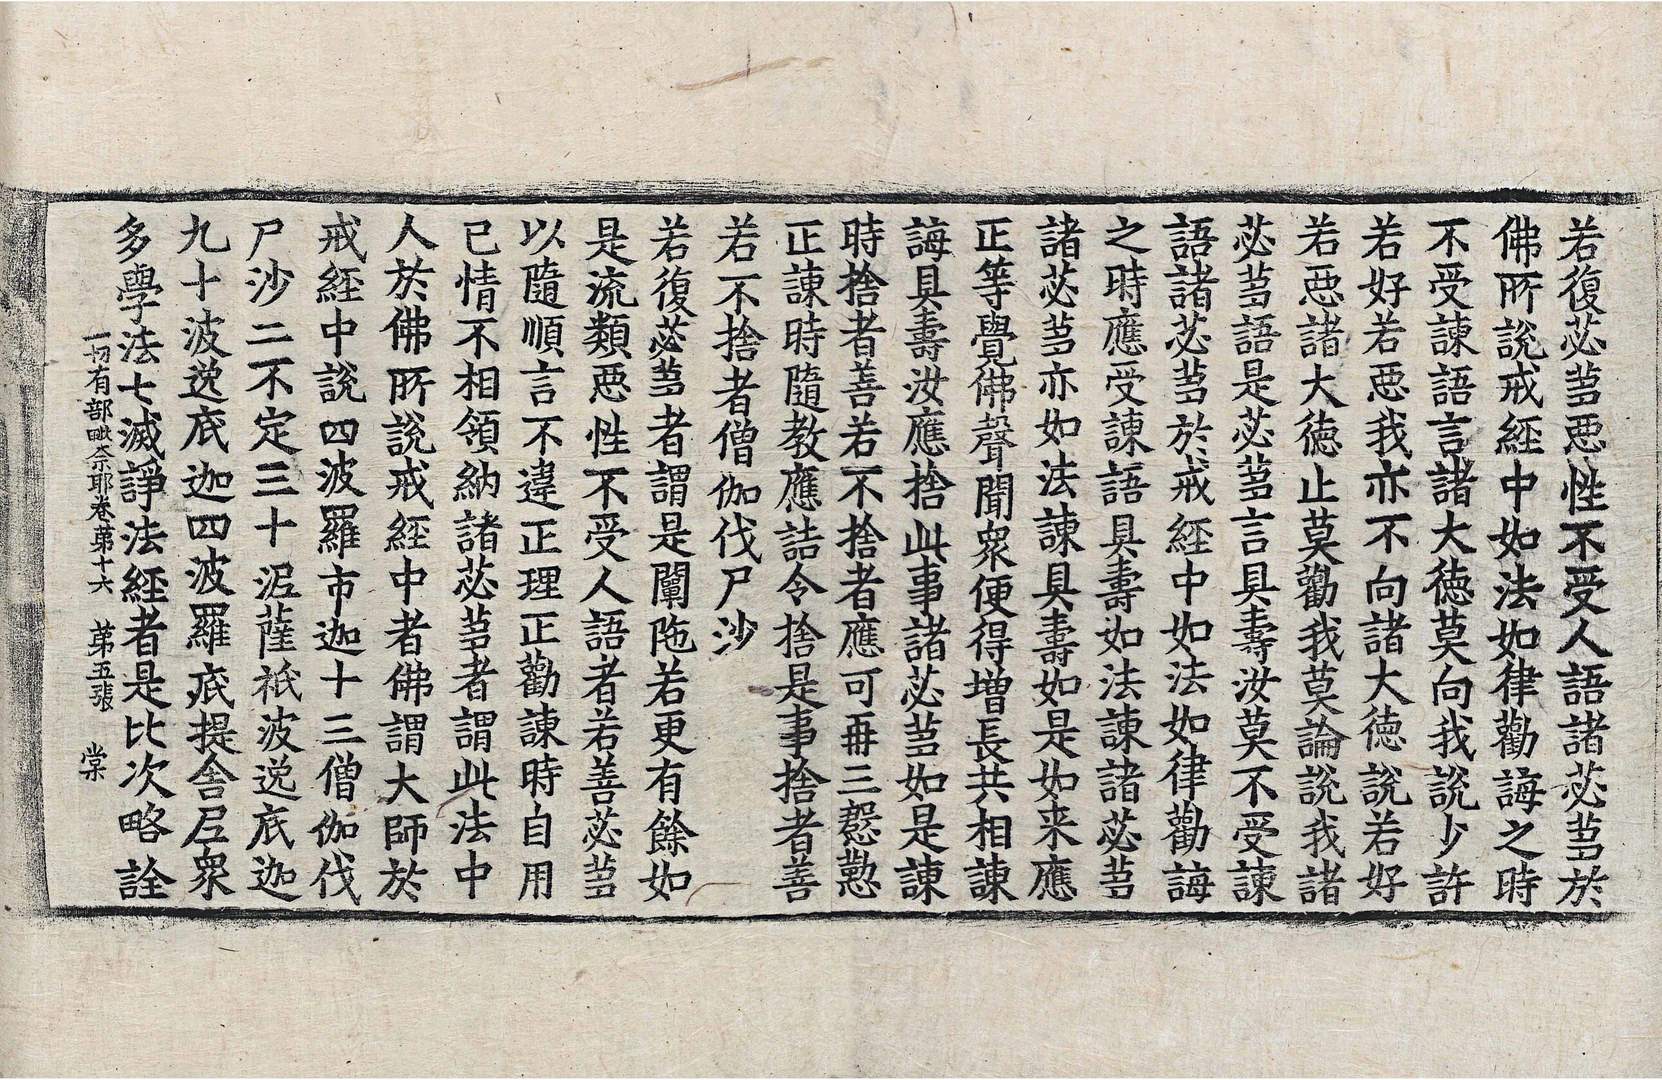 若復苾芻惡性不受人語諸苾芻於
佛所說戒經中如法如律勸誨之時
不受諫語言諸大德莫向我說少許
若好若惡我亦不向諸大德說若好
若惡諸大德止莫勸我莫論說我諸
苾芻語是苾芻言具壽汝莫不受諫
語諸苾芻於戒經中如法如律勸誨
之時應受諫語具壽如法諫諸苾芻
諸苾芻亦如法諫具壽如是如来應
正等覺佛聲聞衆便得增長共相諫
誨具壽汝應捨此事諸苾芻如是諫
時捨者善若不捨者應可再三慇懃
正諫時隨教應詰令捨是事捨者善
若不捨者僧伽伐尸沙
若復苾芻者謂是闡陁若更有餘如
是流類惡性不受人語者若善苾芻
以隨順言不違正理正勸諫時自用
己情不相領納諸苾芻者謂此法中
人於佛所說戒經中者佛謂大師於
戒經中說四波羅市迦十三僧伽伐
尸沙二不定三十泥薩祇波逸底迦
九十波逸底迦四波羅底提舍尼衆
多學法七滅諍法經者是比次略詮
一切有部毗奈耶卷第十六 第五張 棠